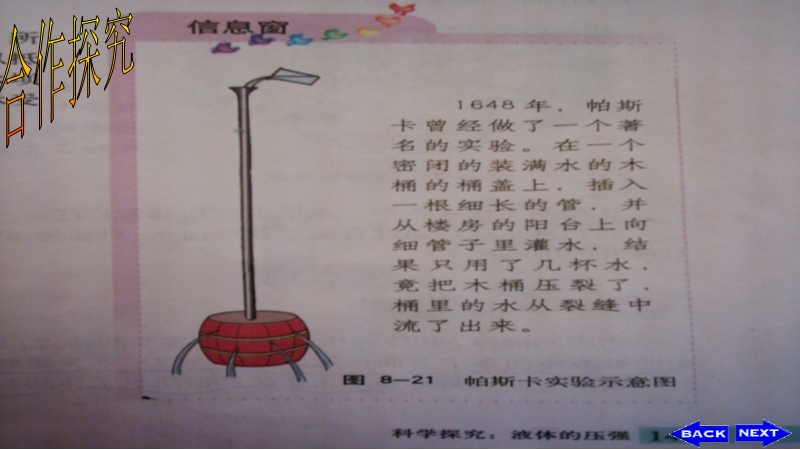 合作探究
信息窗
1648年，帕斯
卡曾经做了一个著
名的实验。在一个
密闭的装满水的木
桶的桶盖上，插入
一根细长的管，并
从楼房的阳台上向
细管子里灌水，结
果只用了几杯水，
竟把木桶压裂了，
桶里的水从裂缝中
流了出来。
图 8—21 帕斯卡实验示意图
科学探究：液体的压强
BACK NEXT